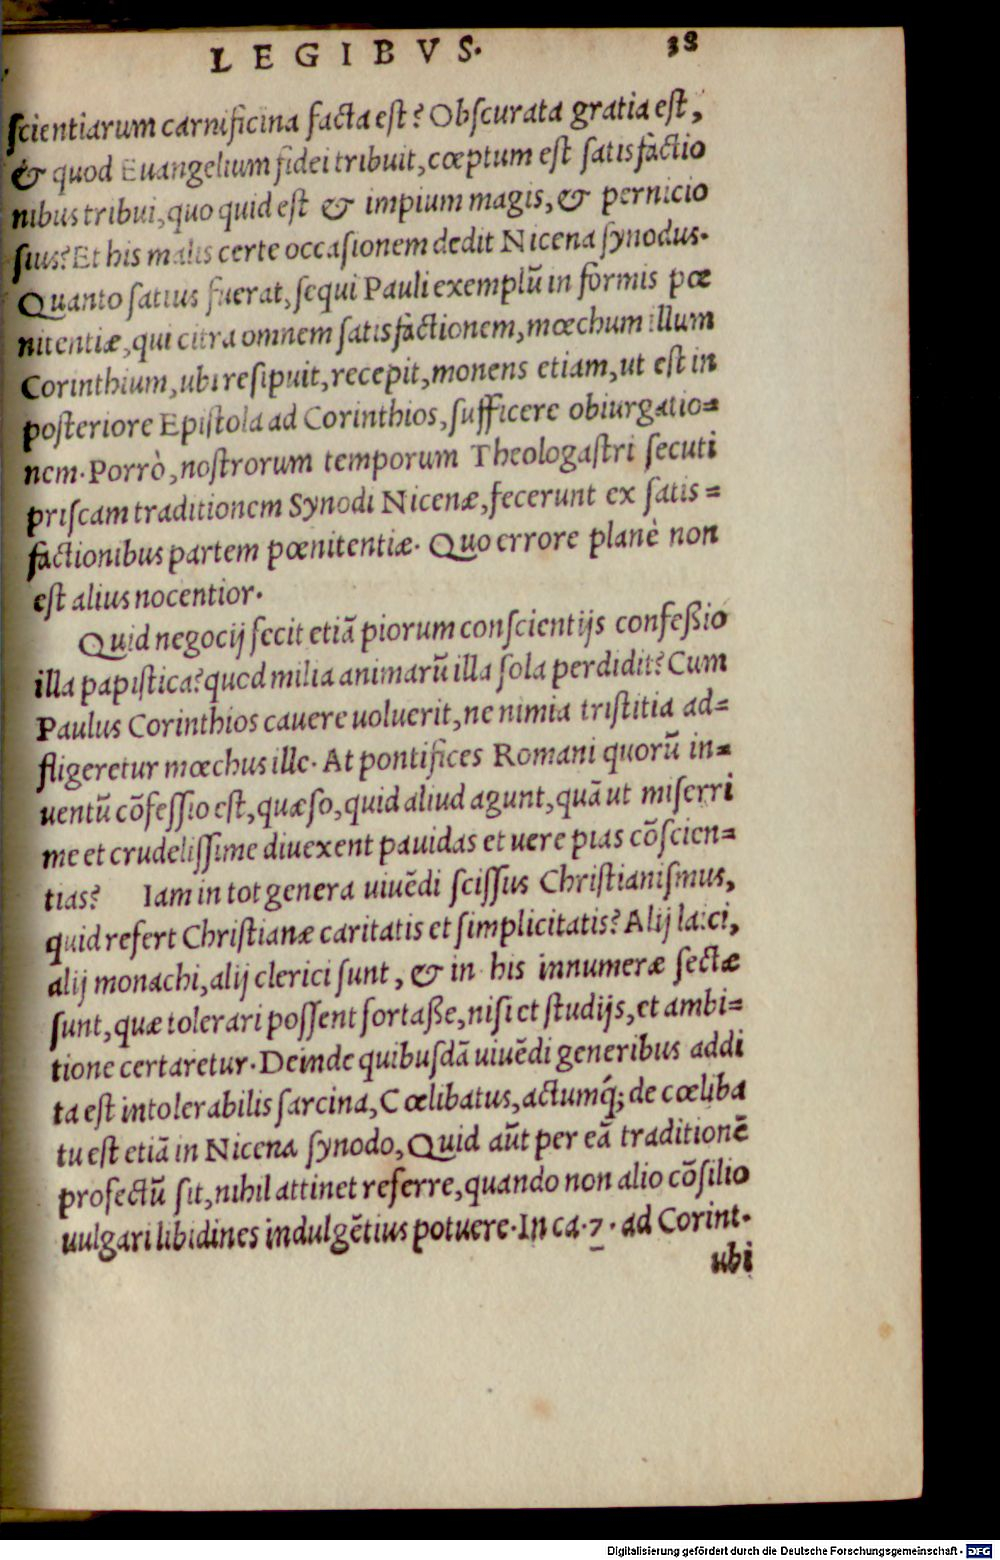 LEGIBVS. 38
scientiarum carnificina facta est? Obscurata gratia est,
& quod Euangelium fidei tribuit, cœptum est satisfactio
nibus tribui, quo quid est & impium magis, & pernicio
sius? Et his malis certe occasionem dedit Nicena synodus.
Quanto satius fuerat, sequi Pauli exemplũ in formis pœ
nitentiæ, qui citra omnem satisfactionem, mœchum illum
Corinthium, ubi resipuit, recepit, monens etiam, ut est in
posteriore Epistola ad Corinthios, sufficere obiurgatio=
nem. Porrò, nostrorum temporum Theologastri secuti
priscam traditionem Synodi Nicenæ, fecerunt ex satis=
factionibus partem pœnitentiæ. Quo errore planè non
est alius nocentior.
Quid negocij fecit etiã piorum conscientijs confeßio
illa papistica? quod milia animarũ illa sola perdidit? Cum
Paulus Corinthios cauere uoluerit, ne nimia tristitia ad=
fligeretur mœchus ille. At pontifices Romani quorũ in=
uentũ cõfessio est, quæso, quid aliud agunt, quã ut miserri
me et crudelissime diuexent pauidas et uere pias cõscien=
tias? Iam in tot genera uiuẽdi scissus Christianismus,
quid refert Christianæ caritatis et simplicitatis? Alij laici,
alij monachi, alij clerici sunt, & in his innumeræ sectæ
sunt, quæ tolerari possent fortaße, nisi et studijs, et ambi=
tione certaretur. Deinde quibusdã uiuẽdi generibus addi
ta est intolerabilis sarcina, Cœlibatus, actumq́; de cœliba
tu est etiã in Nicena synodo, Quid aũt per eã traditionẽ
profectũ sit, nihil attinet referre, quando non alio cõsilio
uulgari libidines indulgẽtius potuere. In ca. 7. ad Corint.
ubi
Digitalisierung gefördert durch die Deutsche Forschungsgemeinschaft - DFG